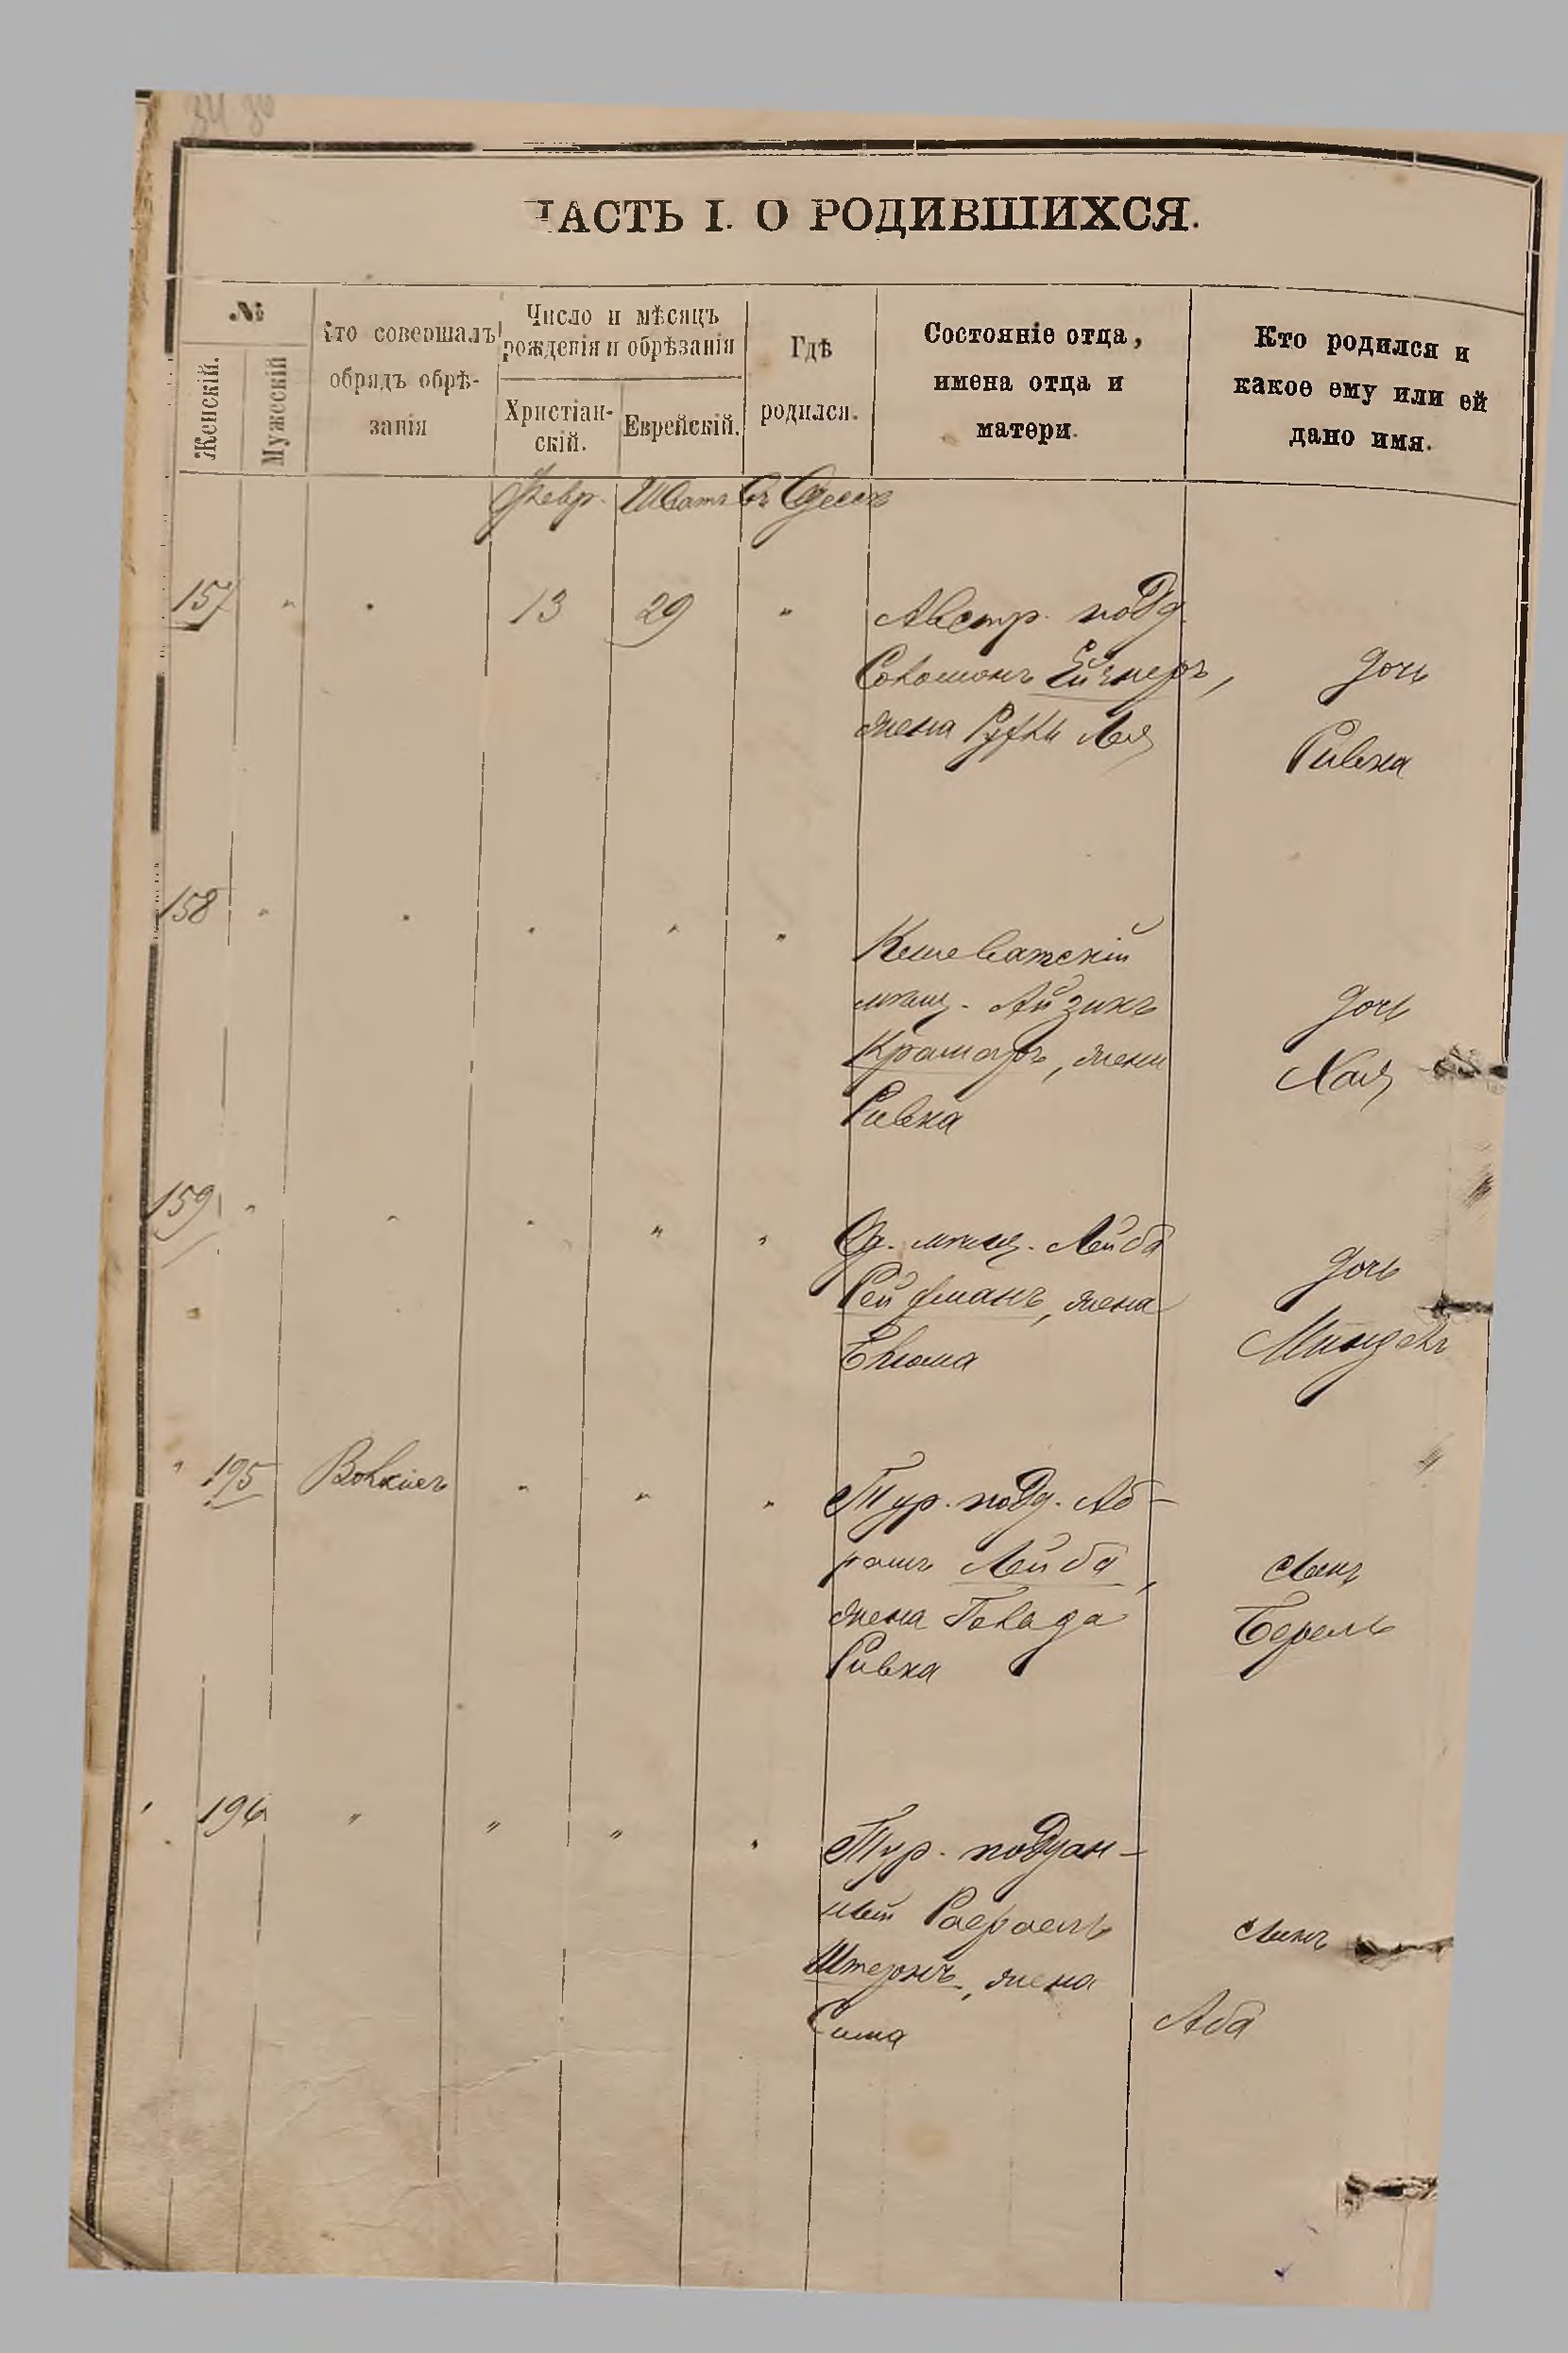 ЧАСТЬ I. О РОДИВШИХСЯ.
№
Женскій.
Мужескій
Кто совершалъ
обрядъ обрѣ-
занія
Число и мѣсяцъ
рожденія и обрѣзанія
Христіан-
скій.
Еврейскій.
Гдѣ
родился.
Состояніе отца,
имена отца и
матери.
Кто родился и
какое ему или ей
дано имя.
Февр. Шватъ Въ Одессѣ
157 " " 13 29 " Австр. подд.
Соломонъ Ейхнеръ,
жена Рухля Лея
дочь
Ривка
158 " " " " " Кошеватскій
мѣщ. Айзикъ
Крамаръ, жена
Ривка
дочь
Хая
159 " " " " " Од. мѣщ. Лейба
Рейфманъ, жена
дочь
Миндель
" 195 " " " Тур. подд. Аб-
рамъ Лейба,
жена Голда
Ривка
сынъ
Берель
" 196 " " " " Тур. поддан-
ный Рафаель
Штернъ, жена
Сима
сынъ
Аба